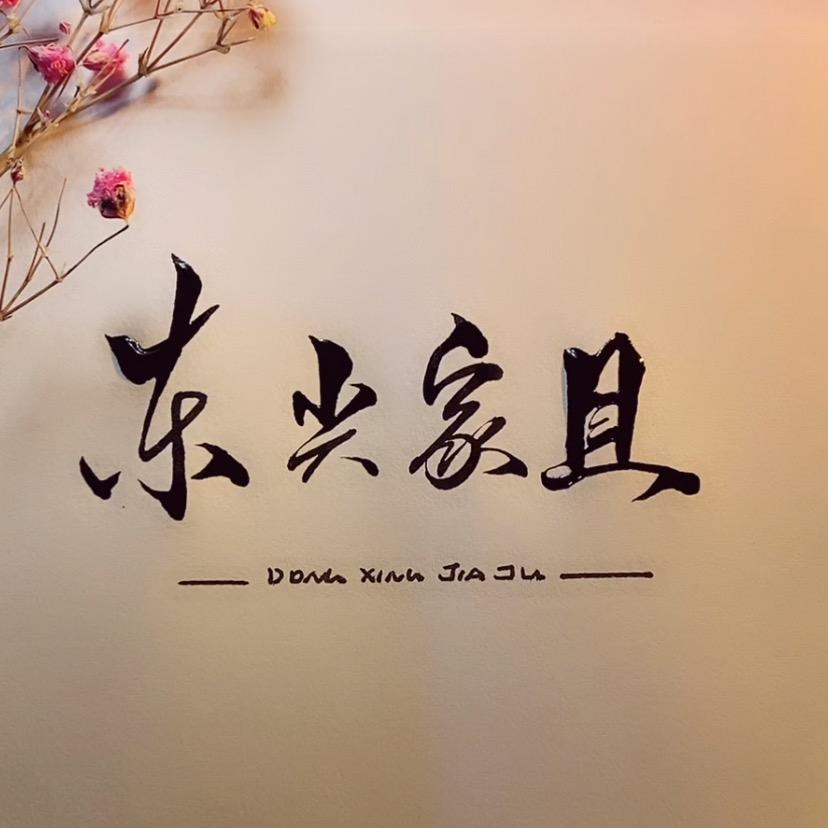 东兴家具
DONG XING JIA JU